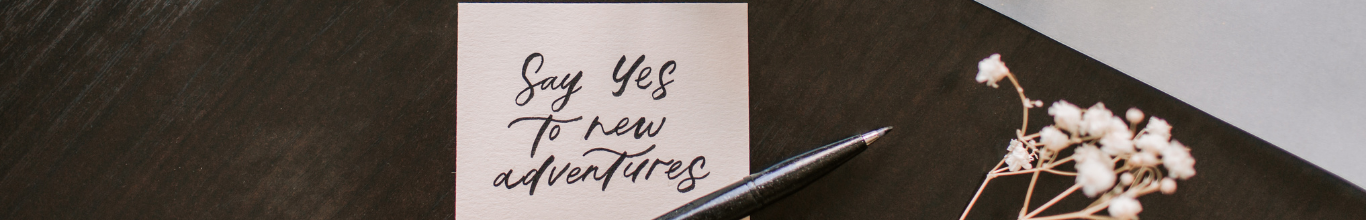 Say Yes
to new
adventures